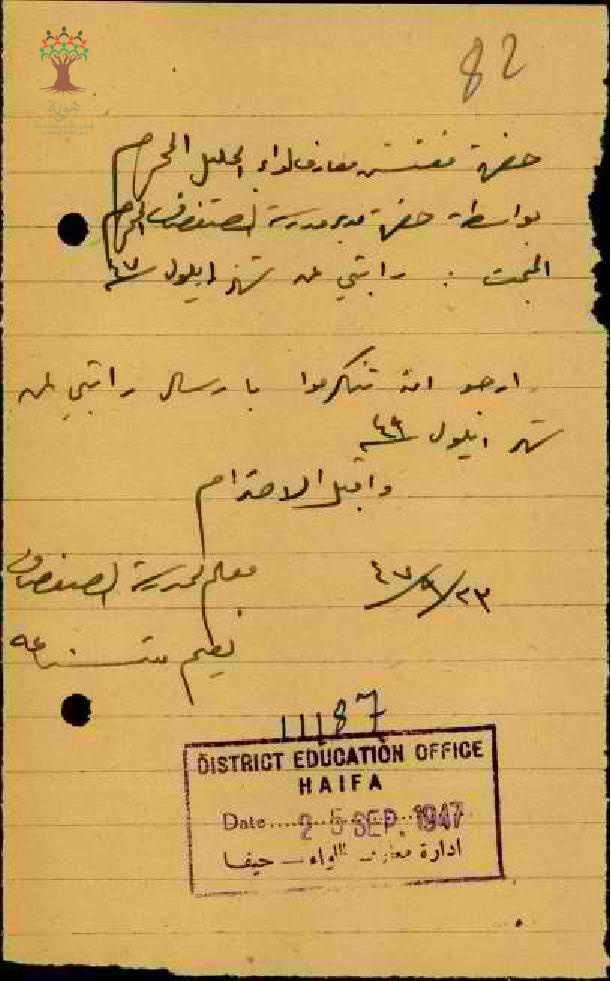 82
هوية
حضرة مفتش معارف لواء الجليل المحترم
بواسطة حضرة مدير مدرسة الصفصاف المحترم
المبحث : راتبي عن شهر ايلول ٤٧
ارجو ان تتكرموا بارسال راتبي عن
شهر ايلول ٤٧
واقبل الاحترام
٢٣/٩/٤٧
معلم مدرسة الصفصاف
11187
DISTRICT EDUCATION OFFICE
HAIFA
Date.... 25 SEP. 1947
ادارة معارف اللواء – حيفا